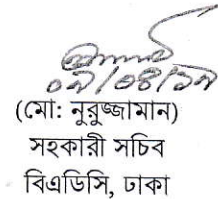 ০৯/০৪/১৯
(মো: নুরুজ্জামান)
সহকারী সচিব
বিএডিসি, ঢাকা